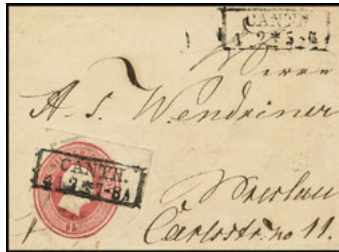 CANTH.
4 2*5-6
Herrn
A. S. Wendriner
CANTH.
4 2*7-8A
Breslau
Carlsstr. no 11.